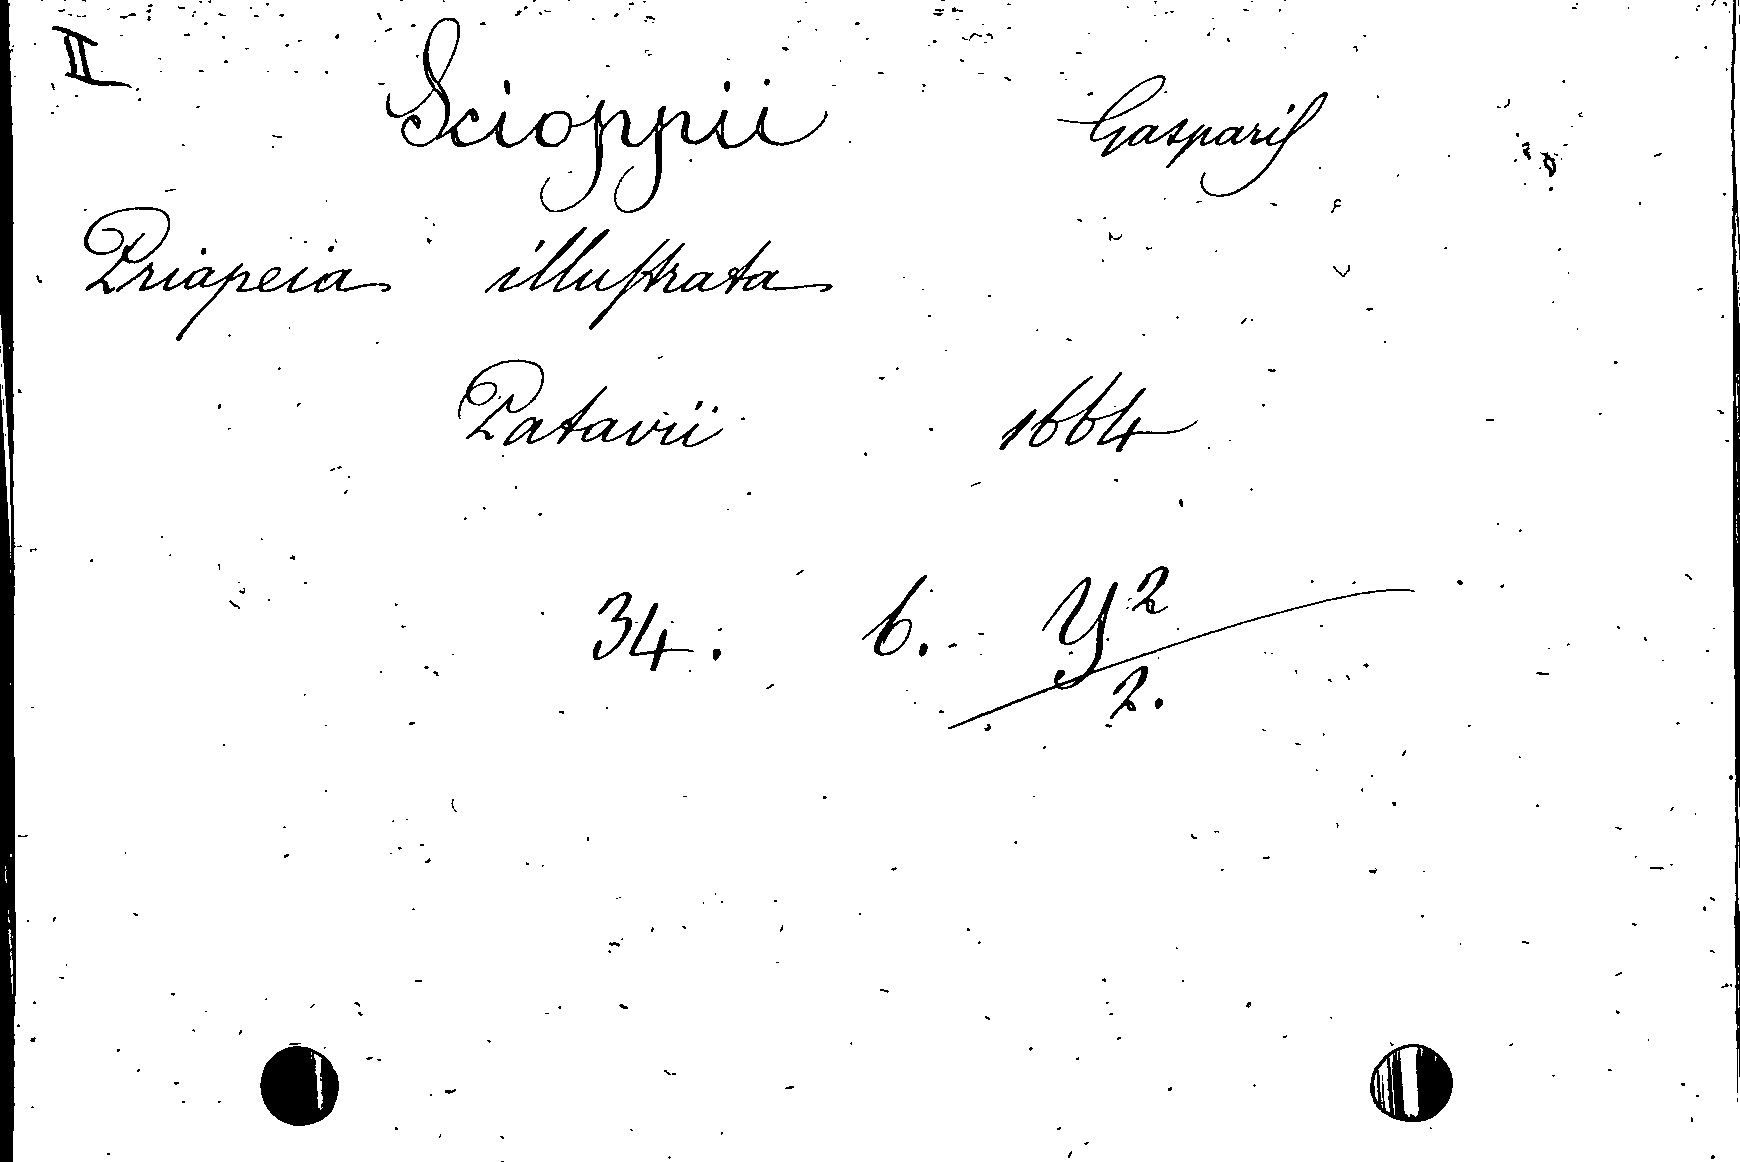 II
Scioppii Gasparis
Priapeia illustrata
Patavii 1664
34. 6. Y²
2.